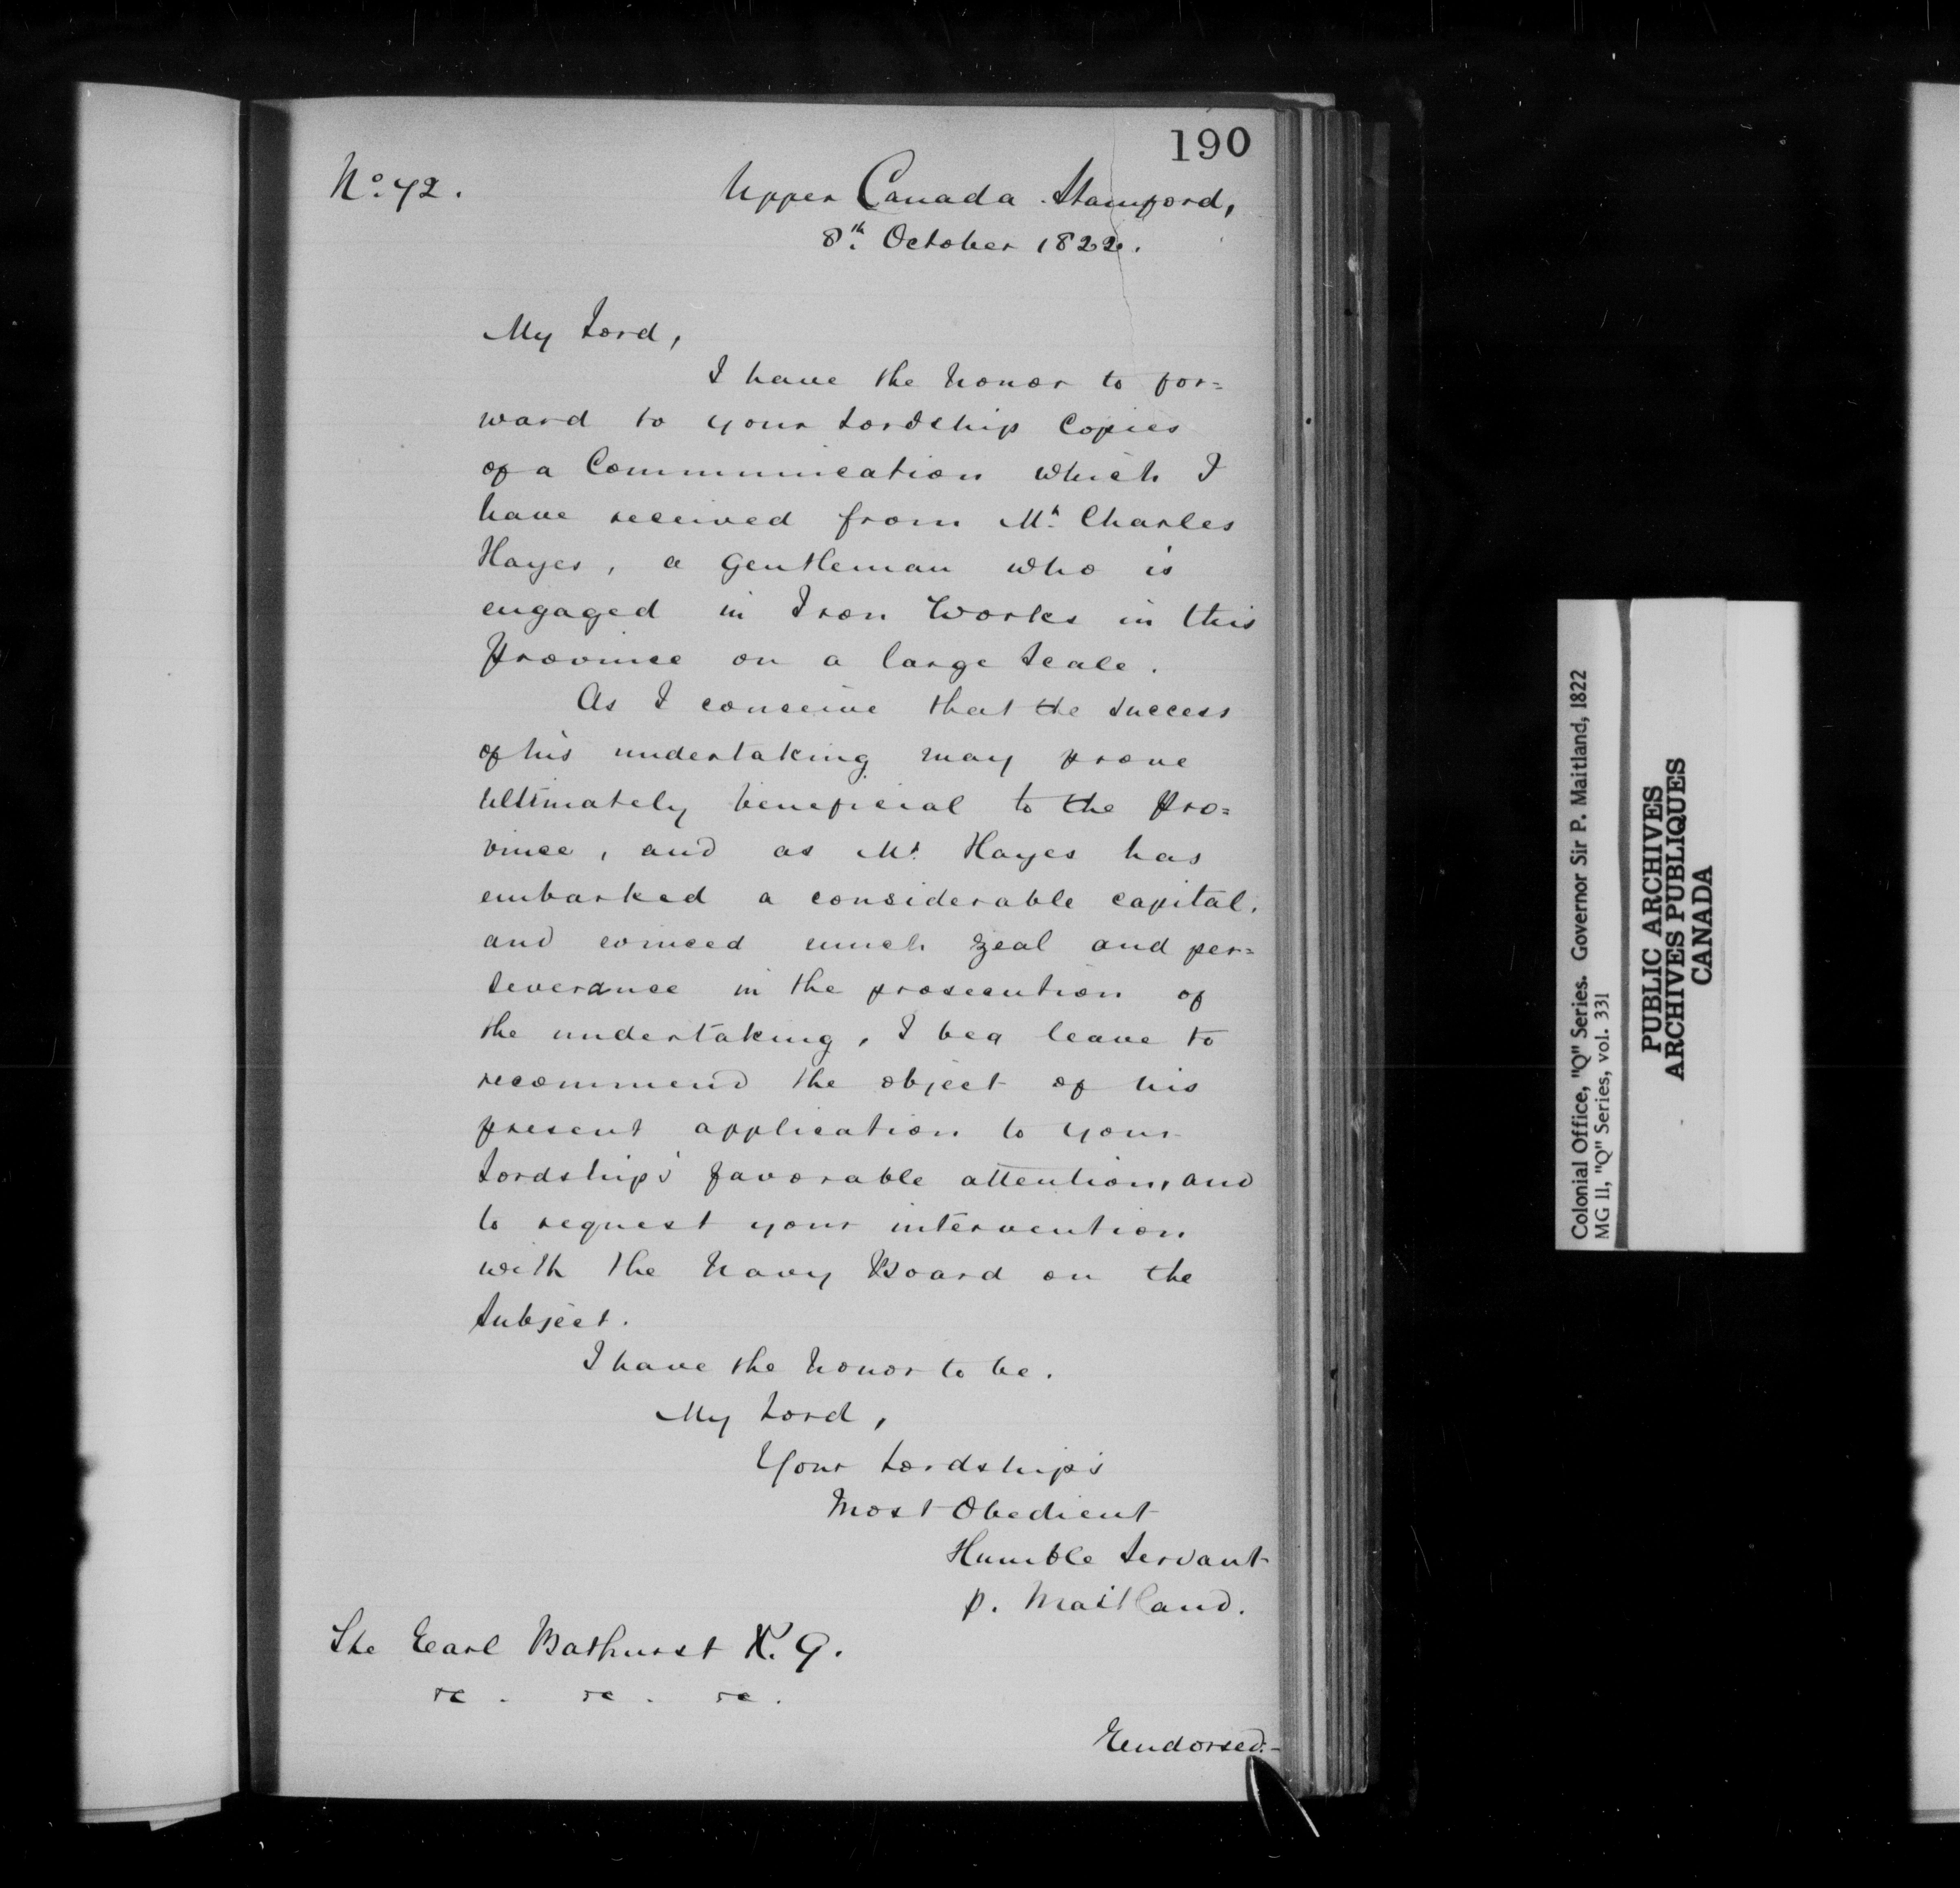 190
No. 42.
Upper Canada Stamford,
8th October 1822.
My Lord,
I have the honor to for=
ward to your Lordship Copies
of a Communication which I
have received from Mr. Charles
Hayes, a gentleman who is
engaged in Iron Works in this
Province on a large Scale.
As I conceive that the Success
of his undertaking may prove
Ultimately beneficial to the Pro=
vince, and as Mr. Hayes has
embarked a considerable capital,
and evinced much zeal and per=
severance in the prosecution of
the undertaking, I beg leave to
recommend the object of his
present application to your
Lordship's favorable attention, and
to request your intervention
with the Navy Board on the
Subject.
I have the honor to be.
My Lord,
Your Lordship's
Most Obedient
Humble Servant
P. Maitland.
The Earl Bathurst K.G.
&c. &c. &c.
Endorsed:-
Colonial Office, "Q" Series. Governor Sir P. Maitland, 1822
MG 11, "Q" Series, vol. 331
PUBLIC ARCHIVES
ARCHIVES PUBLIQUES
CANADA